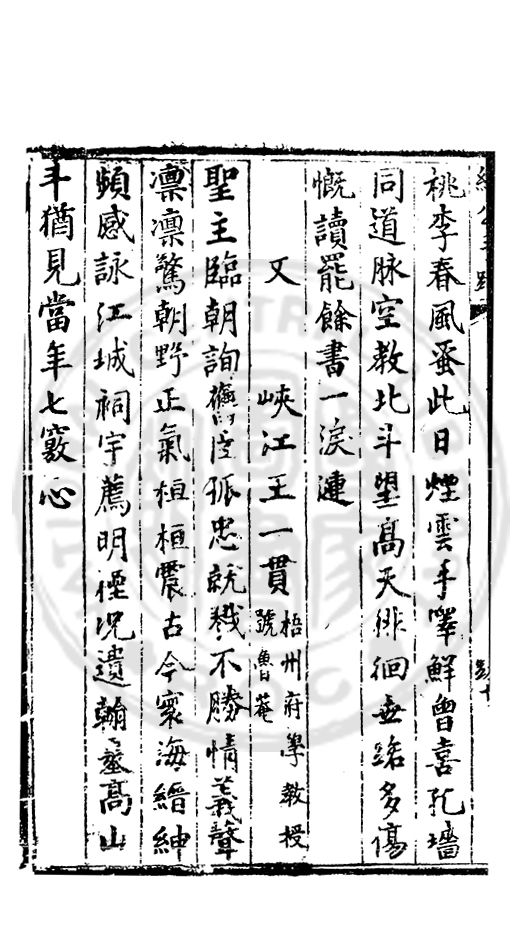 桃李春風蚤此日煙雲手澤鮮曾喜孔墻
同道脉空教北斗望髙天徘徊無路多傷
慨讀罷餘書一淚漣
又 峽江王一貫 梧州府學教授 號魯菴
聖主臨朝詢舊臣孤忠就戮不勝情義聲
凛凛驚朝野正氣桓桓震古今寰海縉紳
頻感詠江城祠宇薦明禋况遺翰墨髙山
斗猶見當年七竅心